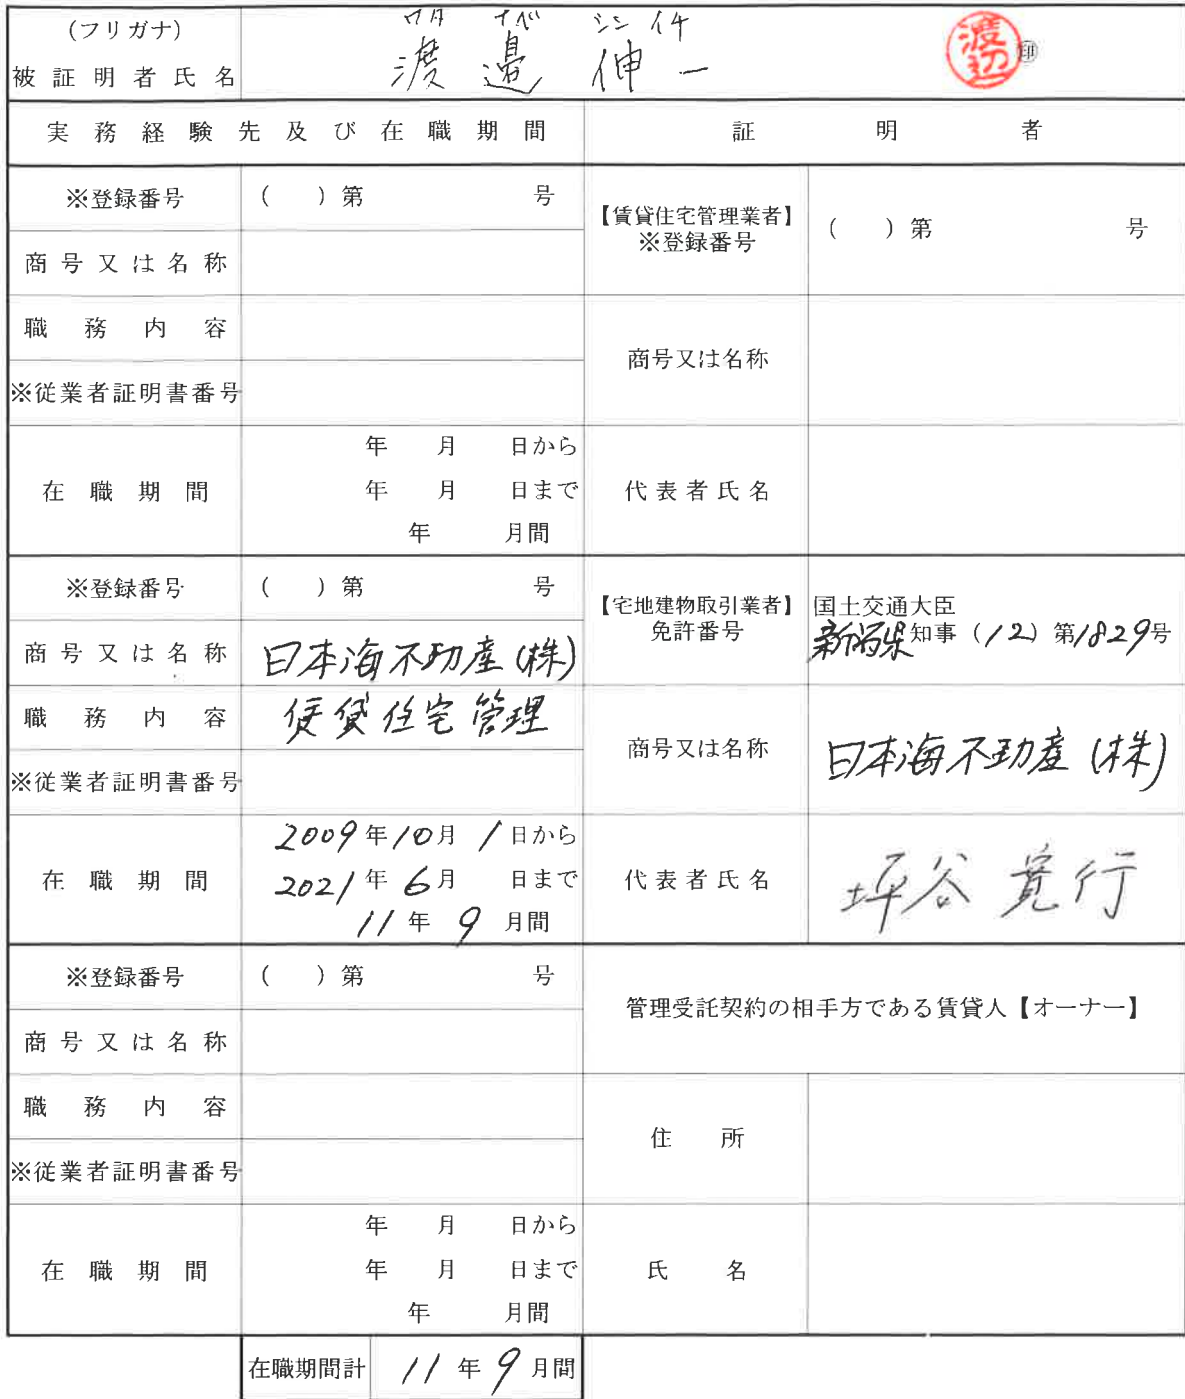 (フリガナ) ワタ ナベ シン イチ
被証明者氏名 渡邉 伸一 渡辺 ㊞
実務経験先及び在職期間 証明者
※登録番号 ( )第 号
【賃貸住宅管理業者】
※登録番号 ( )第 号
商号又は名称
職務内容
商号又は名称
※従業者証明書番号
在職期間
年 月 日から
年 月 日まで
年 月間
代表者氏名
※登録番号 ( )第 号
【宅地建物取引業者】
免許番号
国土交通大臣
新潟県知事(12)第1829号
商号又は名称 日本海不動産(株)
職務内容 賃貸住宅管理
商号又は名称 日本海不動産(株)
※従業者証明書番号
在職期間
2009年10月1日から
2021年6月 日まで
11年9月間
代表者氏名 坪谷 寛行
※登録番号 ( )第 号
管理受託契約の相手方である賃貸人【オーナー】
商号又は名称
職務内容
住所
※従業者証明書番号
在職期間
年 月 日から
年 月 日まで
年 月間
氏名
在職期間計 11年9月間